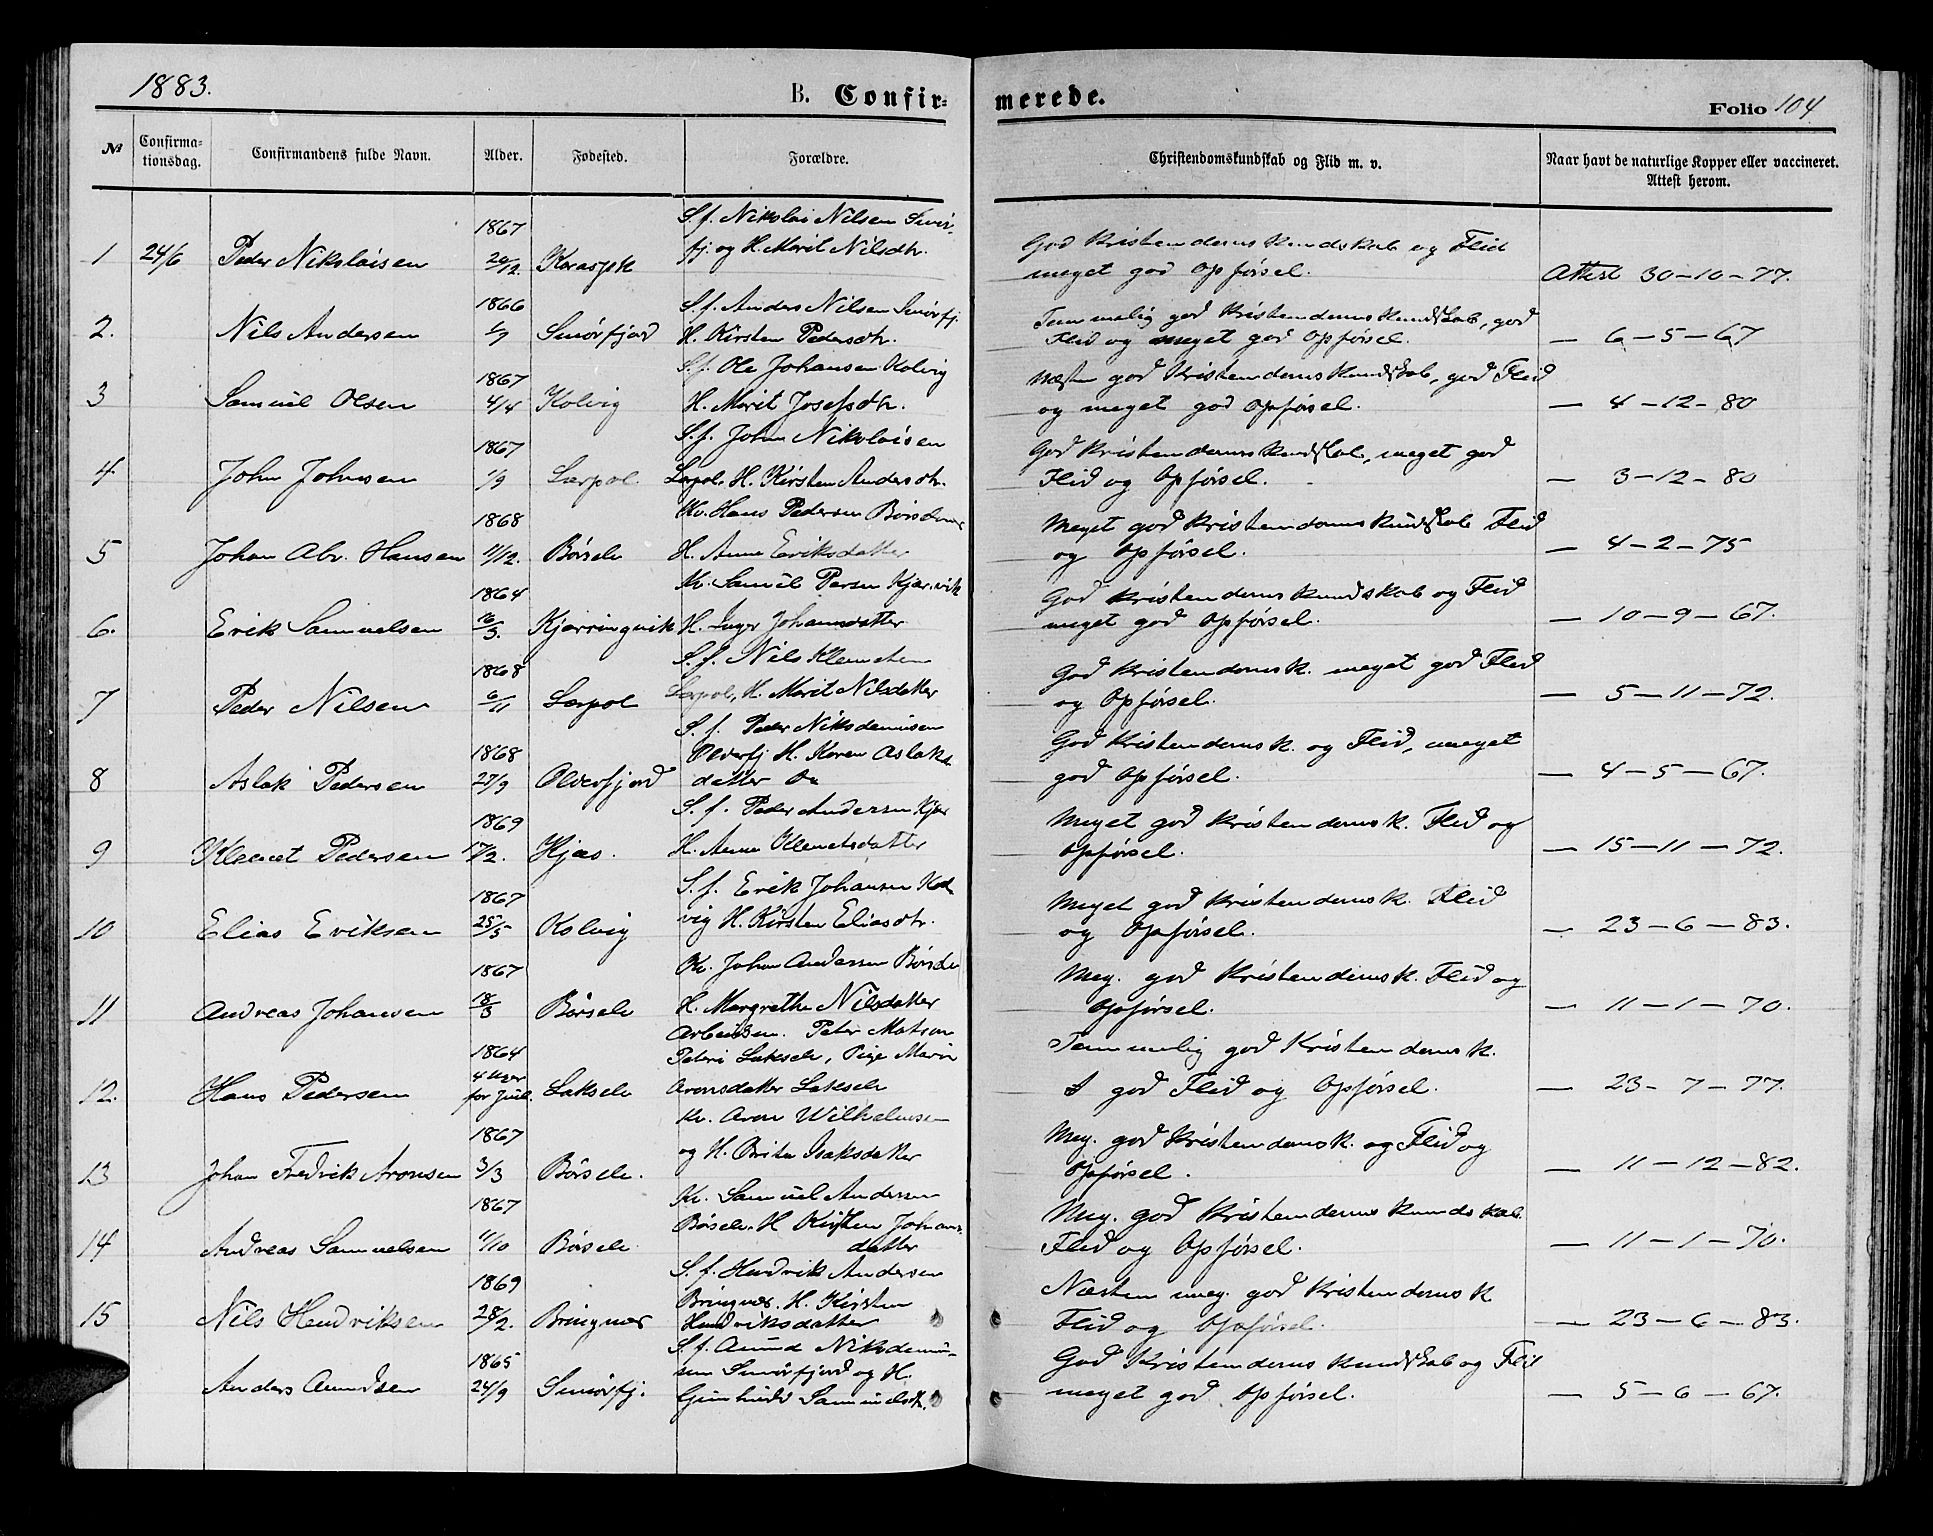 1883.
B. Confir-
merede.
Folio 104
№
Confirma-
tionsdag.
Confirmandens fulde Navn.
Alder.
Fødested.
Forældre.
Christendomskundskab og Flid m. v.
Naar havt de naturlige Kopper eller vaccineret.
Attest herom.
1867
S.f. Nikolai Nilsen Smör-
fj. og H. Marit Nilsdtr.
1 24/6 Peder Nikolaisen Karasjok
God Kristendomskundskab og Flid
meget god Opførsel.
Attest 30-10-77.
1866
S.f. Anders Nilsen Smörfj.
2. Nils Andersen Smörfjord H. Kirsten Pedersdtr.
Temmelig god Kristendomskundskab, god
Flid og meget god Opførsel.
— 6-5-67
S.f. Ole Johansen Kolvig
1867
3 Samuel Olsen 4/4 Kolvig H. Marit Josefsdtr.
Næsten god Kristendomskundskab, god Flid
og meget god Opførsel.
— 4-12-80
S.f. John Nikolaisen
1867
4 John Johnsen 1/9 Lærpol Lærpol. H. Kirsten Andersdtr.
God Kristendomskundskab, meget god
Flid og Opførsel.
— 3-12-80
Kv. Hans Pedersen
1868
5 Johan Abr. Hansen 11/12. Börsele H. Anne Eriksdatter
Meget god Kristendomskundskab Flid
og Opførsel.
— 4-2-75
Kv. Samuel Persen Kjær.vik
1864
6. Erik Samuelsen 16/3 Kjerringvik H. Inger Johannsdatter
God Kristendomskundskab og Flid
meget god Opførsel.
— 10-9-67.
S.f. Nils Klemetsen
1868
7 Peder Nilsen 6/11 Lærpol Lærpol, H. Marit Nilsdatter
God Kristendomsk. meget god Flid
og Opførsel.
— 5-11-72.
S.f. Peder Nikodemisen
1868
Olderfj H. Karen Aslaks-
8 Aslak Pedersen 27/9 Olderfjord datter
God Kristendomsk. og Flid, meget
god Opførsel.
— 4-5-67.
S.f. Peder Andersen Kjæs
1869
9 Klemet Pedersen 17/2. Kjæs. H. Anne Klemetsdatter
Meget god Kristendomsk. Flid og
Opførsel.
— 15-11-72.
S.f. Erik Johansen Kol-
1867
10 Elias Eriksen 25/5 Kolvig vig H. Kirsten Eliasdtr.
Meget god Kristendomsk. Flid
og Opførsel.
— 23-6-83.
Kv. Johan Andersen Börsele
1867
11 Andreas Johansen 18/3 Börsele H. Margrethe Nilsdatter
Meg. god Kristendomsk. Flid og
Opførsel.
— 11-1-70.
Arbeidsm. Peter Matson
1864
Peteri Laksele, Pige Maria
4 Uger
12. Hans Pedersen før Jul. Laksele Aronsdatter Laksele
Temmelig god Kristendomsk.
god Flid og Opførsel.
— 23-7-77.
Kv. Aron Wilhelmsen
1867
13 Johan Fredrik Aronsen 3/3 Börsele. og H. Brita Isaksdatter
Meg. god Kristendomsk. og Flid og
Opførsel.
— 11-12-82.
Kv. Samuel Andersen
1867
Börsele. H Kirsten Johans-
14 Andreas Samuelsen 11/10 Börsele. datter
Meg. god Kristendomskundskab.
Flid og Opførsel.
— 11-1-70.
S.f. Hendrik Andersen
1869
Bringnæs. H. Kirsten
15 Nils Hendriksen 28/2. Bringnæs Hendriksdatter
Næsten meg. god Kristendomsk
Flid og Opførsel.
— 23-6-83.
S.f. Amund Nikodemi-
1865
sen Smörfjord og H.
Anders Amundsen 24/9 Smörfj. Gunhild Samuelsdtr.
God Kristendomskundskab og Flid
meget god Opførsel.
— 5-6-67.